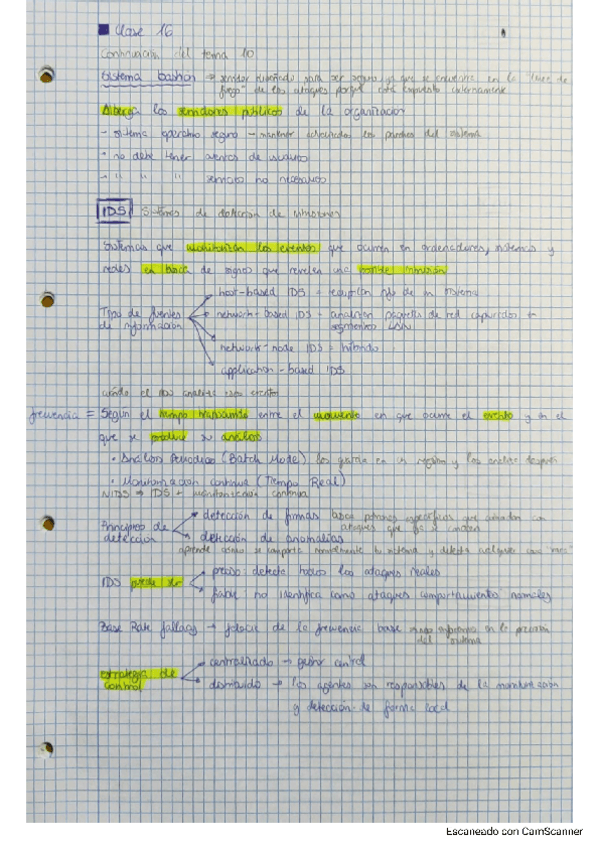 Clase 16
Continuación del tema 10
Sistema bastion → servidor diseñado para ser seguro, ya que se encuentra en la "línea de
fuego" de los ataques porque está expuesto externamente
Alberga los servidores públicos de la organización
- sistema operativo seguro → mantener actualizados los parches del sistema
- no debe tener cuentas de usuario
- " " " servicios no necesarios
IDS Sistemas de detección de intrusiones
Sistemas que monitorizan los eventos que ocurren en ordenadores, sistemas y
redes en busca de signos que revelen una posible intrusión
Tipo de fuentes
de información
host-based IDS de un sistema
network-based IDS = analizan paquetes de red capturados
segmentos LAN
network-node IDS = híbrido
application-based IDS
cuándo el IDS analiza esos eventos
frecuencia = Según el tiempo transcurrido entre el momento en que ocurre el evento y en el
que se produce su análisis
• Análisis Periódico (Batch Mode) los guarda en un registro y los analiza después
• Monitorización continua (Tiempo Real)
IDS + monitorización continua
Principios de
detección
detección de firmas busca patrones específicos que coincidan con
ataques que ya se conocen
detección de anomalías
aprende cómo se comporta normalmente tu sistema y detecta cualquier cosa "rara"
IDS puede ser
preciso: detecta todos los ataques reales
fiable: no identifica como ataques comportamientos normales
Base Rate fallacy → falacia de la frecuencia base en la precisión
del sistema
estrategia de
control
centralizado → gestor central
distribuido → los agentes son responsables de la monitorización
y detección de forma local
Escaneado con CamScanner